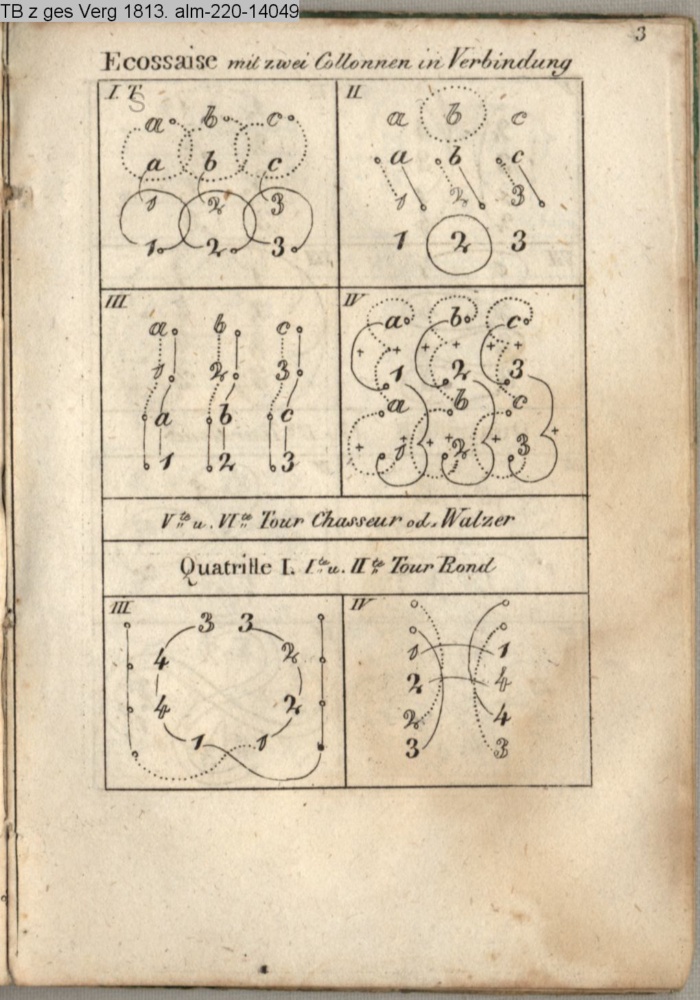 TB z ges Verg 1813. alm-220-14049
3
Ecossaise mit zwei Collonnen in Verbindung
I. T. II
S
a b c a b c
a b c a b c
1 2 3 1 2 3
1 2 3 1 2 3
III IV
a b c a b c
1 2 3 1 2 3
a b c a b c
1 2 3 1 2 3
Vte u. VIte Tour Chasseur od. Walzer
Quatrille I. Ite u. IIte Tour Rond
III IV
3 3
4 2 1 1
4 2 2 4
1 1 2 4
3 3